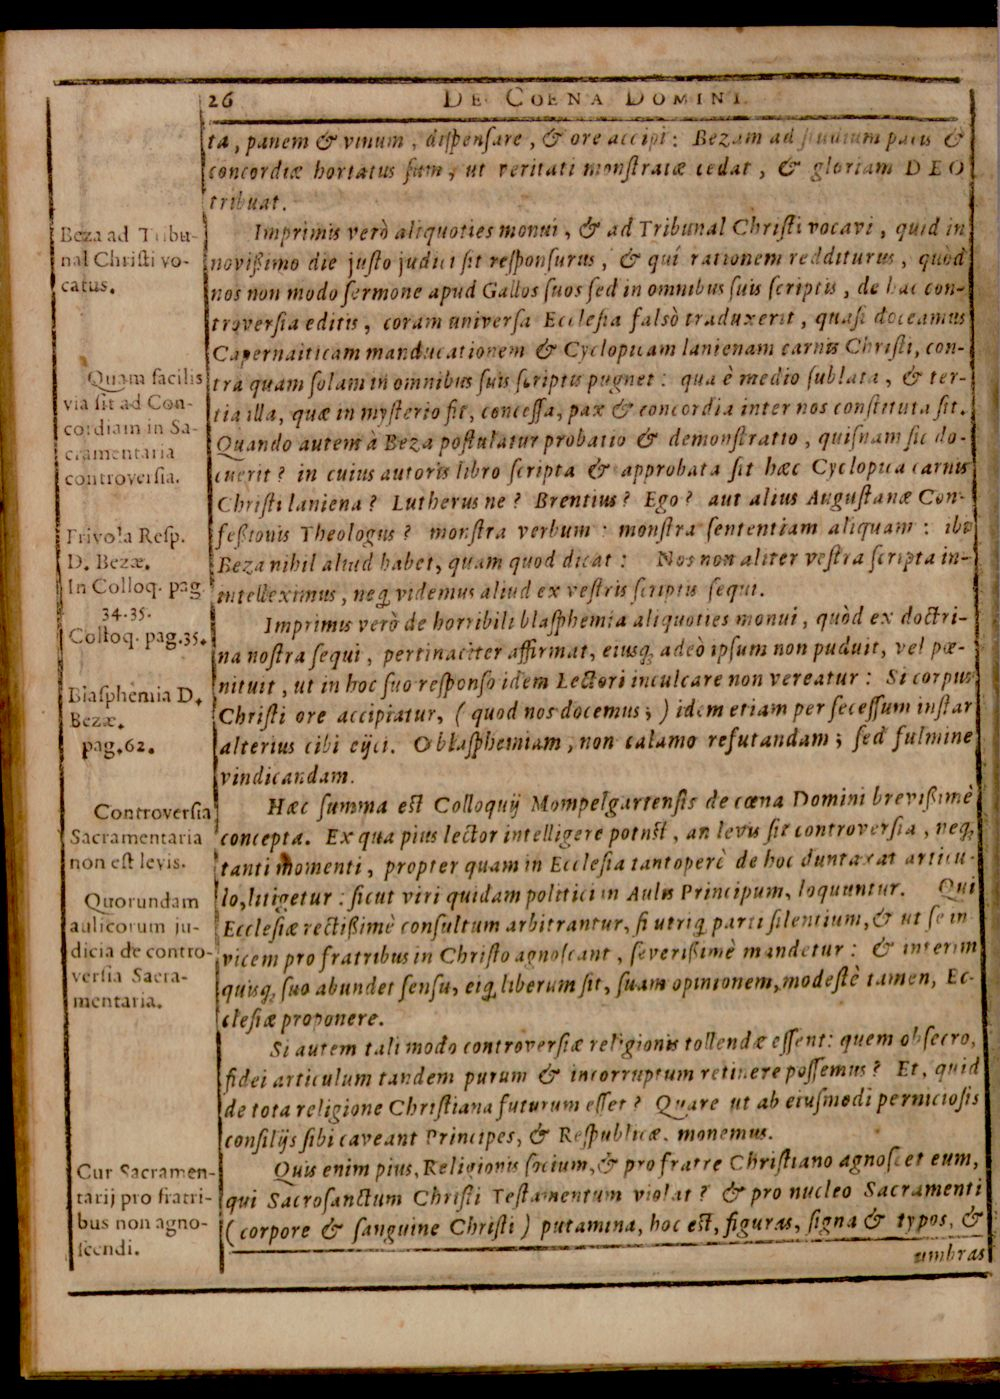 26
DE COENA DOMINI.
ta, panem & vinum, diſpenſare, & ore accipi: Bezam ad ſtudium pacis &
concordiæ hortatus ſum, ut veritati monſtratæ cedat, & gloriam DEO
tribuat.
Beza ad Tribu-
nal Chriſti vo-
catus.
Imprimis verò aliquoties monui, & ad Tribunal Chriſti vocavi, quid in
noviſsimo die juſto judici ſit reſponſurus, & quí rationem redditurus, quòd
nos non modo ſermone apud Gallos ſuos ſed in omnibus ſuis ſcriptis, de hac con-
troverſia editis, coram univerſa Eccleſia falsò traduxerit, quaſi doceamus
Capernaiticam manducationem & Cyclopicam lanienam carnis Chriſti, con-
Quam facilis
via ſit ad Con-
cordiam in Sa-
cramentaria
controverſia.
tra quam ſolam in omnibus ſuis ſcriptis pugnet: qua è medio ſublata, & ter-
tia illa, quæ in myſterio fit, conceſſa, pax & concordia inter nos conſtituta ſit.
Quando autem à Beza poſtulatur probatio & demonſtratio, quiſnam ſic do-
cuerit? in cuius autoris libro ſcripta & approbata ſit hæc Cyclopica carnis
Chriſti laniena? Lutherus ne? Brentius? Ego? aut alius Auguſtanæ Con-
Frivola Reſp.
D. Bezæ.
In Colloq. pag.
34.35.
Colloq. pag.35.
feſsionis Theologus? monſtra verbum: monſtra ſententiam aliquam: ibi
Beza nihil aliud habet, quam quod dicat: Nos non aliter veſtra ſcripta in-
intelleximus, neq; videmus aliud ex veſtris ſcriptis ſequi.
Imprimis verò de horribili blaſphemia aliquoties monui, quòd ex doctri-
na noſtra ſequi, pertinaciter affirmat, eiusq; adeò ipſum non puduit, vel pœ-
Blaſphemia D.
Bezæ.
pag.62.
nituit, ut in hoc ſuo reſponſo idem Lectori inculcare non vereatur: Si corpus
Chriſti ore accipiatur, (quod nos docemus;) idem etiam per ſeceſſum inſtar
alterius cibi eijci. O blaſphemiam, non calamo refutandam; ſed fulmine
vindicandam.
Controverſia
Sacramentaria
non eſt levis.
Hæc ſumma eſt Colloquij Mompelgartenſis de cœna Domini breviſsimè
concepta. Ex qua pius lector intelligere poteſt, an levis ſit controverſia, neq;
tanti momenti, propter quam in Eccleſia tantoperè de hoc duntaxat articu-
Quorundam
aulicorum ju-
dicia de contro-
verſia Sacra-
mentaria.
lo, litigetur: ſicut viri quidam politici in Aulis Principum, loquuntur. Qui
Eccleſiæ rectiſsimè conſultum arbitrantur, ſi utriq; parti ſilentium, & ut ſe in
vicem pro fratribus in Chriſto agnoſcant, ſeveriſsimè mandetur: & interim
quisq; ſuo abundet ſenſu, eiq; liberum ſit, ſuam opinionem, modeſtè tamen, Ec-
cleſiæ proponere.
Si autem tali modo controverſiæ religionis tollendæ eſſent: quem obſecro,
fidei articulum tandem purum & incorruptum retinere poſſemus? Et, quid
de tota religione Chriſtiana futurum eſſet? Quare ut ab eiuſmodi pernicioſis
conſilijs ſibi caveant Principes, & Reſpublicæ, monemus.
Cur Sacramen-
tarij pro fratri-
bus non agno-
ſcendi.
Quis enim pius, Religionis ſocium, & pro fratre Chriſtiano agnoſcet eum,
qui Sacroſanctum Chriſti Teſtamentum violat? & pro nucleo Sacramenti
(corpore & ſanguine Chriſti) putamina, hoc eſt, figuras, ſigna & typos, &
umbras